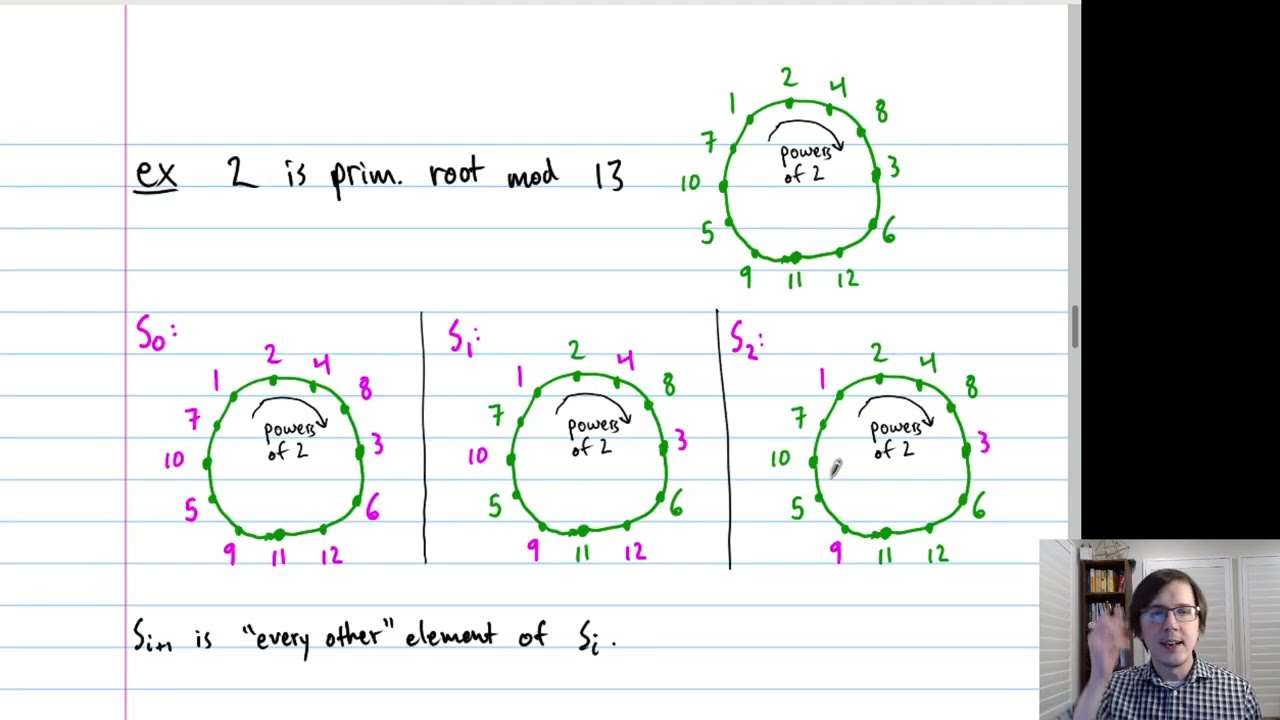 ex 2 is prim. root mod 13
2
1 4
8
7
powers
of 2
3
10
5
6
9 11 12
S₀:
2
1 4
8
7
powers
of 2
3
10
5
6
9 11 12
S₁:
2
1 4
8
7
powers
of 2
3
10
5
6
9 11 12
S₂:
2
1 4
8
7
powers
of 2
3
10
5
6
9 11 12
Sᵢ₊₁ is "every other" element of Sᵢ.